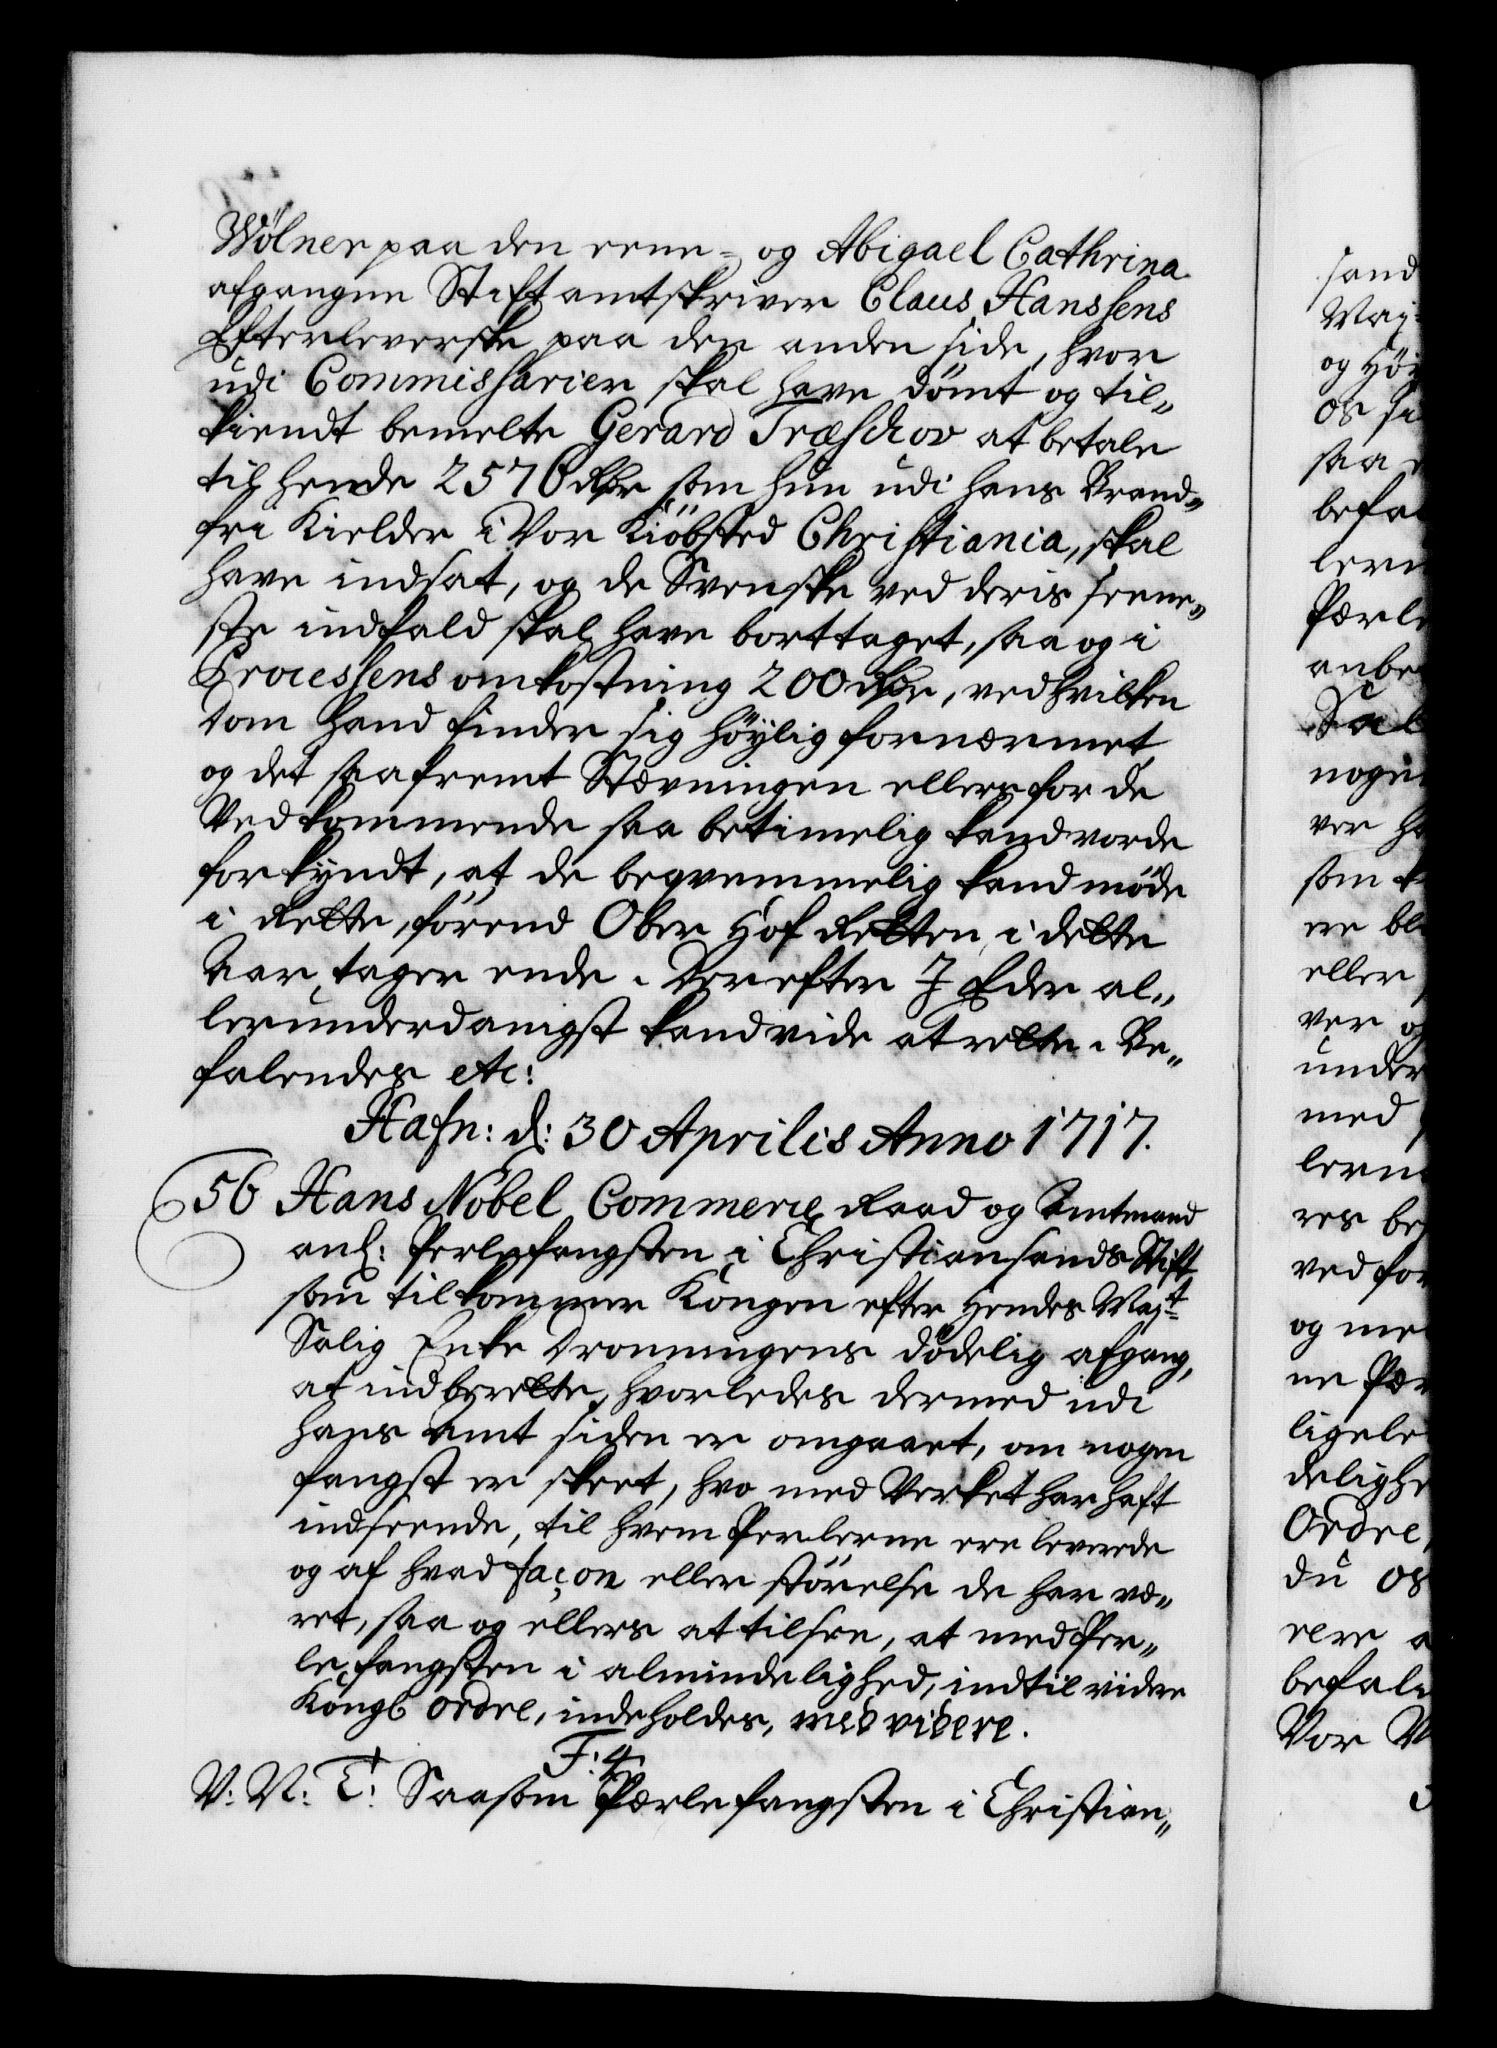 Wölner paa den eene - og Abigael Cathrina
afgangne Stiftamtskriver Claus Hanssens
Efterleverske paa den anden side, hvor
udi Commissarier skal have dömt og til„
kiendt bemelte Gerard Træschov at betale
til hende 2576 Rdr som hun udi hans Brand„
fri Kielder i Vor Kiöbsted Christiania, skal
have indsat, og de Svenske ved deris seene„
ste indfald skal have borttaget, saa og i
Processens omkostning 200 Rdr, ved hvilken
dom hand finder sig höylig fornærmet
og det saafremt Stævningen ellers for de
Vedkommende saa betimelig kand vorde
forkyndt, at de beqvemmelig kand möde
i Rette, förend Ober Hof Retten i dette
Aar tager ende. Derefter I Eder al„
lerunderdanigst kand vide at rette. Be„
falendes etc:
Hafn: d: 30 Aprilis Anno 1717.
56 Hans Nobel Commerce Raad og Amtmand
anl: Perlefangsten i Christiansands Stift
som tilkommer Kongen efter Hendes Majt
Salig Enke Dronningens dödelig afgang,
at indberette, hvorledes dermed udi
hans Amt siden er omgaaet, om nogen
fangst er skeet, hvo med Verket har haft
indseende, til hvem Perlerne ere leverede
og af hvad façon eller störelse de har væ„
ret, saa og ellers at tilsee, at med Per„
le fangsten i almindelighed, indtil videre
Kongl ordre, indeholdes, med videre.
F: 4
V: N: T: Saasom Pærlefangsten i Christian„
sand
Maj
og Höy
os
saa
befa
lern
Pærle
anbe
Sal
noge
ver
som
ere bl
eller
ver
under
med
lern
res be
ved for
og me
ne Pær
ligele
delighe
Ordre,
du os
rere
befale
Vor